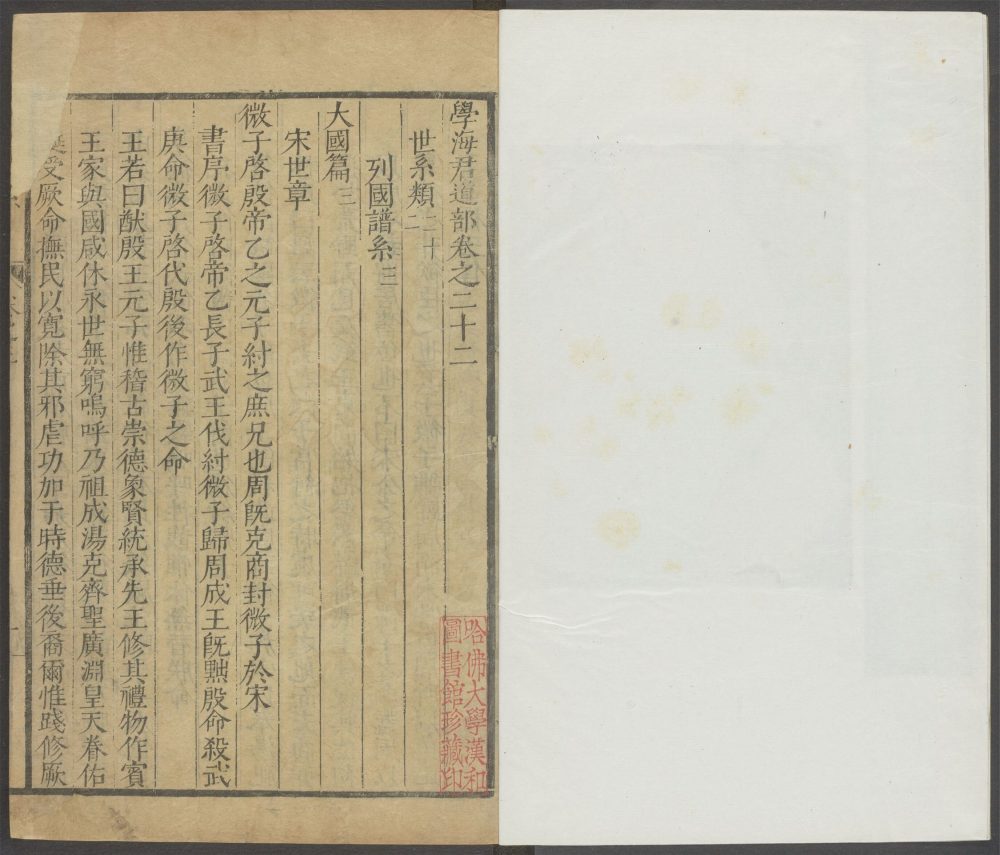 學海君道部卷之二十二
世系類二十二
列國譜系三
大國篇三
宋世章
微子啓殷帝乙之元子紂之庶兄也周旣克商封微子於宋
書序微子啓帝乙長子武王伐紂微子歸周成王旣黜殷命殺武
庚命微子啓代殷後作微子之命
王若曰猷殷王元子惟稽古崇德象賢統承先王修其禮物作賓
王家與國咸休永世無窮嗚呼乃祖成湯克齊聖廣淵皇天眷佑
受厥命撫民以寬除其邪虐功加于時德垂後裔爾惟踐修厥
哈佛大學漢和
圖書館珍藏印